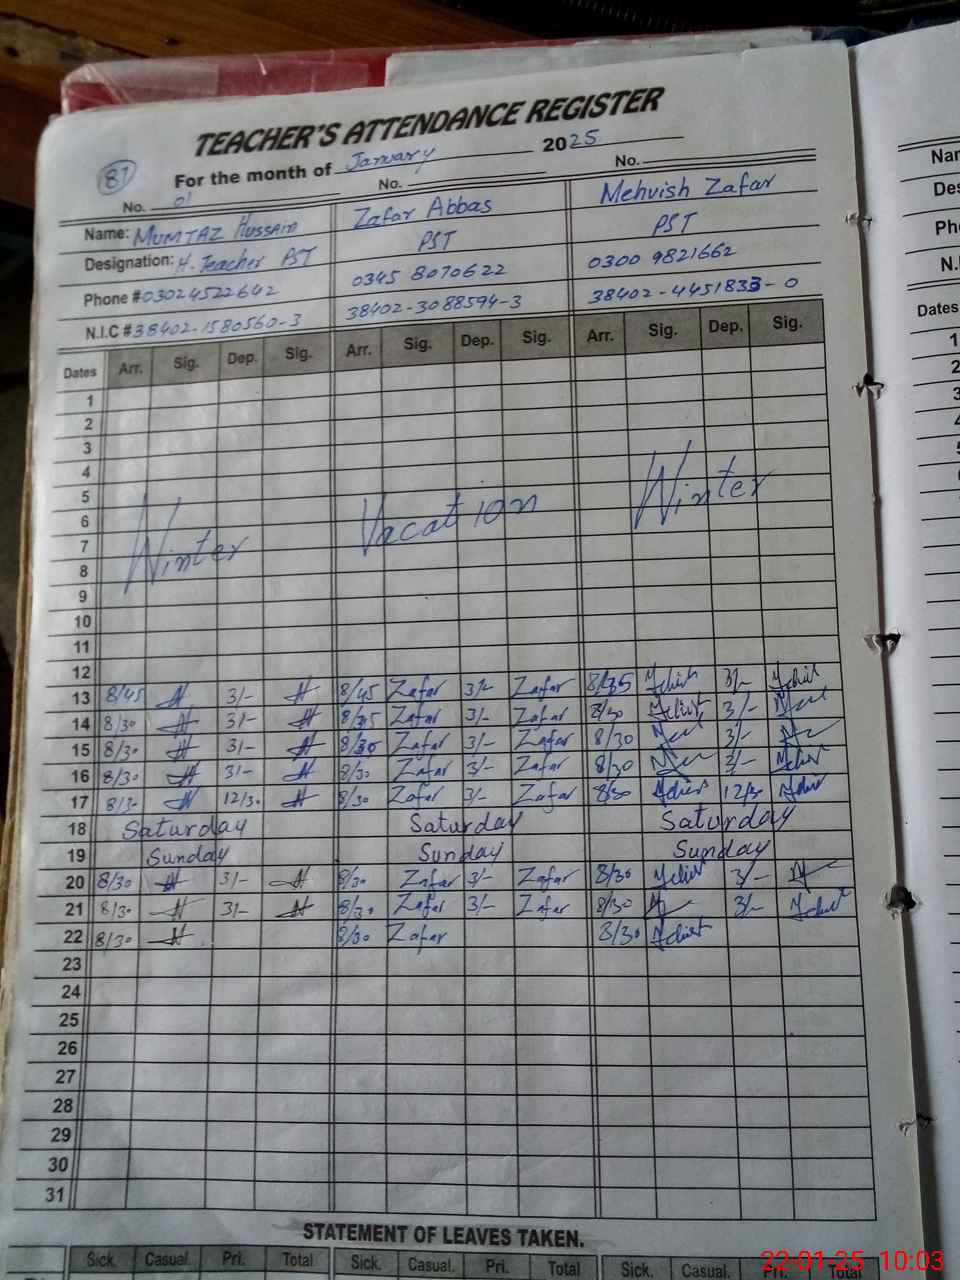 TEACHER'S ATTENDANCE REGISTER
87 For the month of January 2025
No. 01 No. No.
Name: MUMTAZ HUSSAIN Zafar Abbas Mehvish Zafar
Designation: H. Teacher PST PST PST
Phone # 03024522642 0345 8070622 0300 9821662
N.I.C # 38402-1580560-3 38402-3088594-3 38402-4451833-0
Dates Arr. Sig. Dep. Sig. Arr. Sig. Dep. Sig. Arr. Sig. Dep. Sig.
1
2
3
4
5
6
7
8
9
Winter Vacation Winter
10
11
12
13 8/45 3/- 8/45 Zafar 3/- Zafar 8/35 3/-
14 8/30 3/- Zafar 3/- Zafar 8/30 3/-
15 8/30 3/- 8/30 Zafar 3/- Zafar 8/30 3/-
16 8/30 3/- 8/30 Zafar 3/- Zafar 8/30 3/-
17 8/30 12/30 8/30 Zafar 3/- Zafar 8/30 12/30
18 Saturday Saturday Saturday
19 Sunday Sunday Sunday
20 8/30 3/- 8/30 Zafar 3/- Zafar 8/30 3/-
21 8/30 3/- 8/30 Zafar 3/- Zafar 8/30 3/-
22 8/30 8/30 Zafar 8/30
23
24
25
26
27
28
29
30
31
STATEMENT OF LEAVES TAKEN.
Sick. Casual. Pri. Total Sick. Casual. Pri. Total Sick. Casual. Pri. Total
22-01-25 10:03
Dates
1
2
3